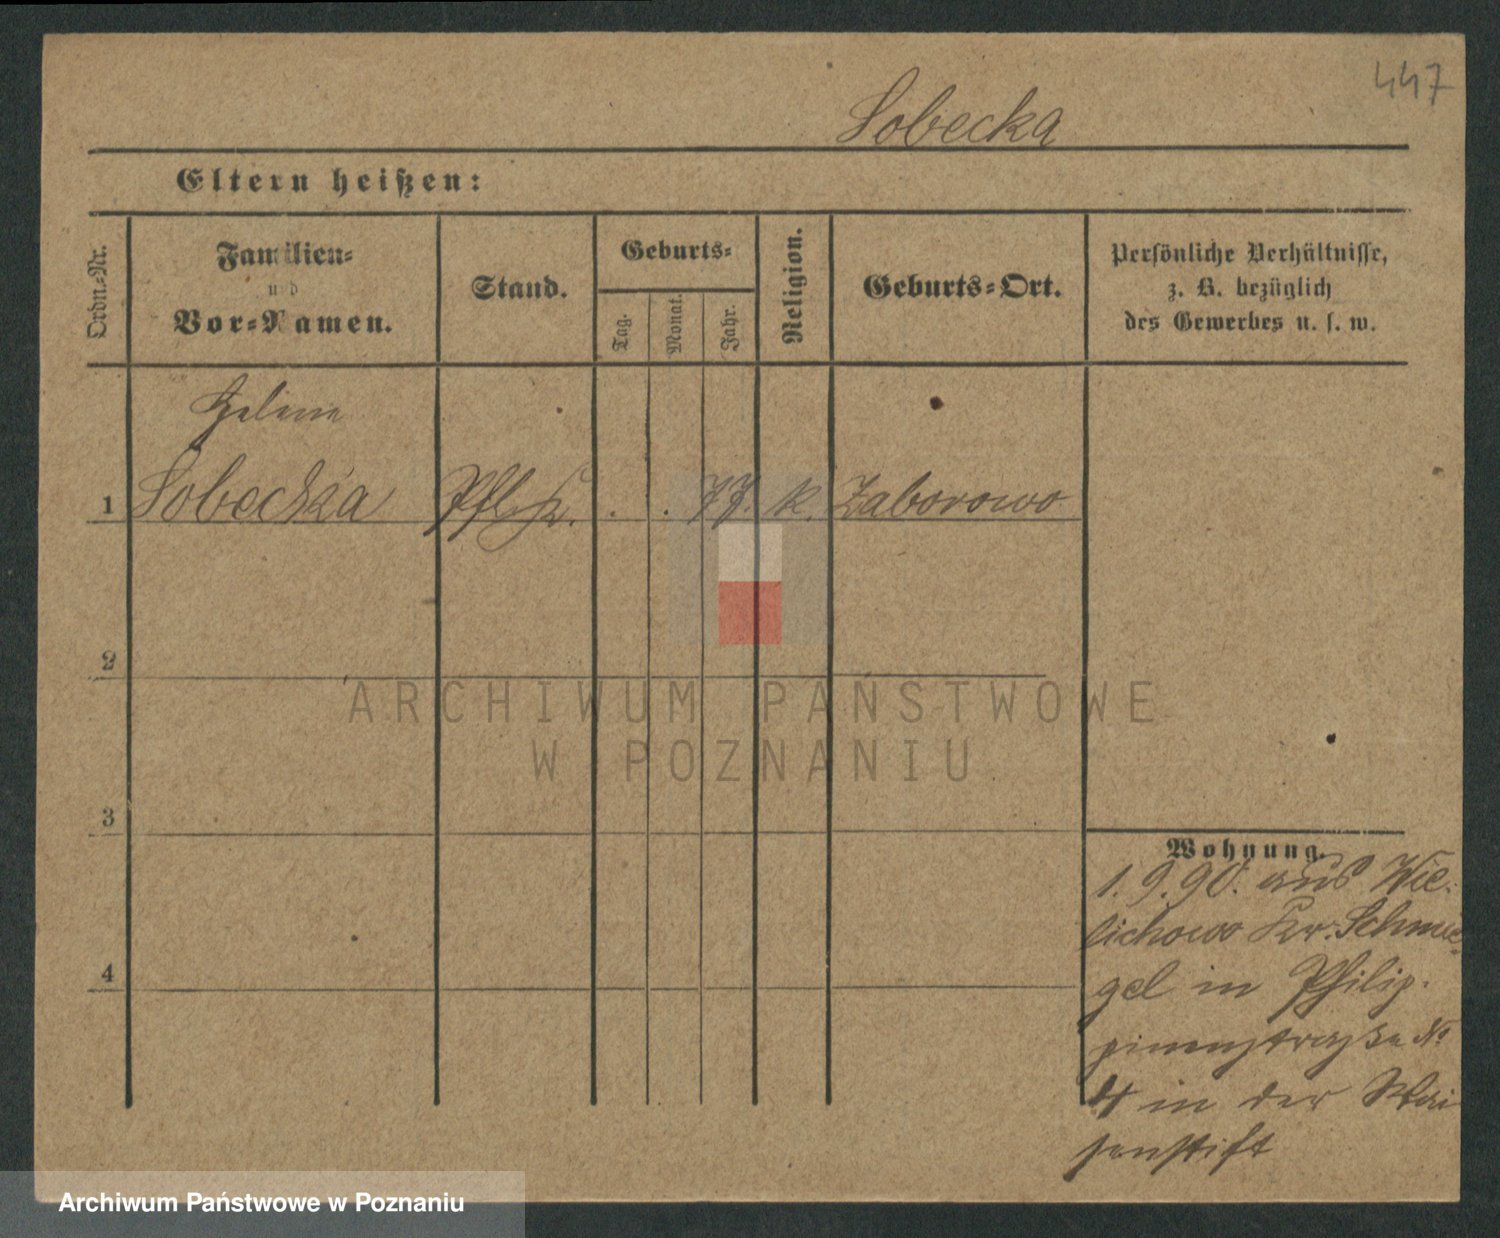 447
Sobecka
Eltern heißen:
Ordn.-Nr.
Familien-
und
Vor-Namen.
Stand.
Geburts-
Tag.
Monat.
Jahr.
Religion.
Geburts-Ort.
Persönliche Verhältnisse,
z. B. bezüglich
des Gewerbes u. s. w.
Helene
1 Sobecka Pfl. K. . . 77. k. Zaborowo
2
3
4
Wohnung.
1. 9. 90. aus Wie-
lichowo Kr. Schmie-
gel in Philip-
pinenstraße No
4 in der Wai
senstift
ARCHIWUM PAŃSTWOWE
W POZNANIU
Archiwum Państwowe w Poznaniu